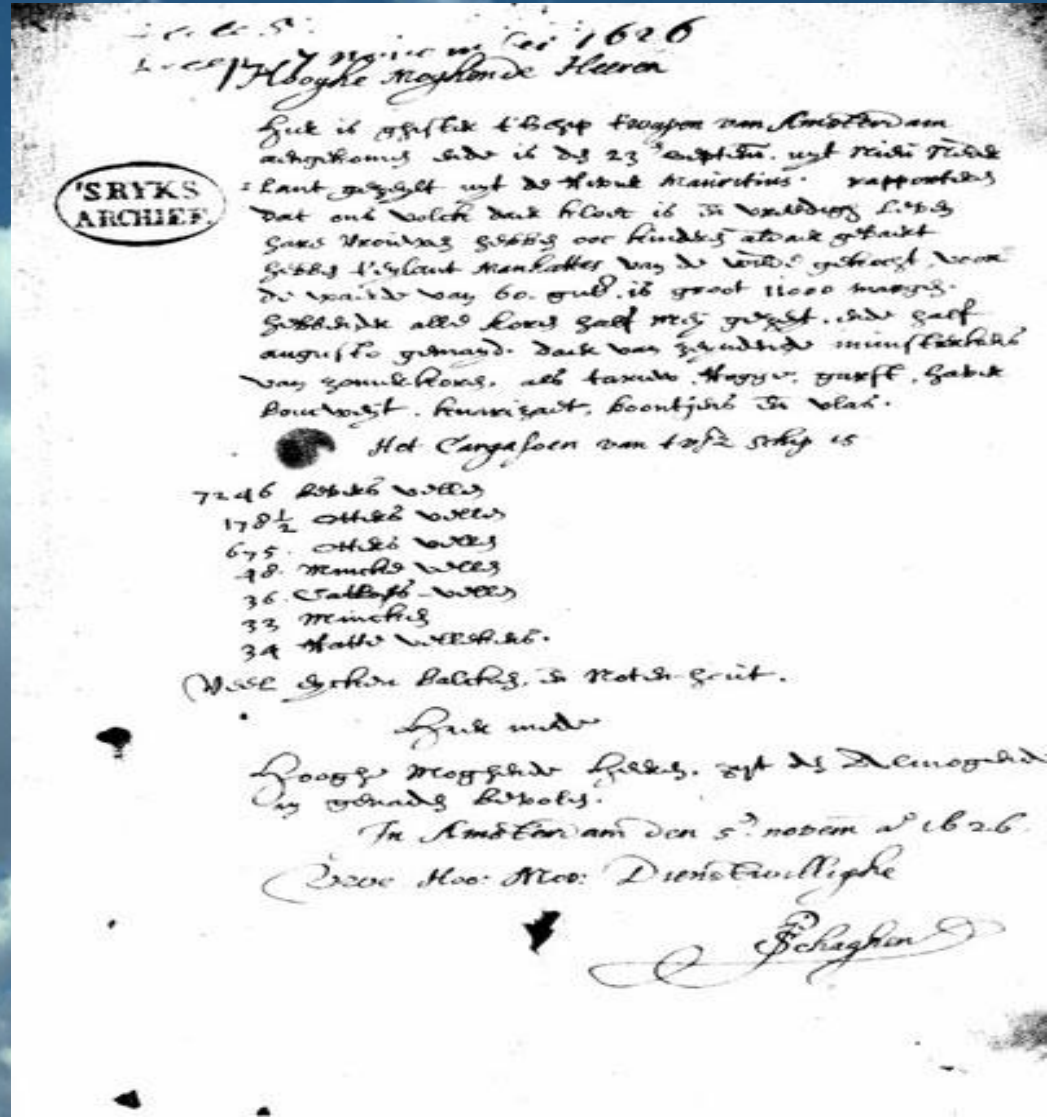 1626
Hooghe Moghende Heeren
Hier is ghister t'schip t'wapen van Amsterdam
aengekomen ende is den 23en septem. uyt Nieu Neder
lant gezeylt uyt de rivier Mauritius. rapporteren
dat ons volck daer kloec is en vreedigh leven
hare vrouwen hebben oock kinders aldaer gebaert
hebben t'eylant Manhattes van de wilde gekocht, voor
de waerde van 60. guld. is groot 11000 morgen.
hebbende alle koren half mey gezeyt. ende half
augusto gemayd. daer van zeyndende munsterkens
van zomerkoren. als tarruw. Rogge. garst. haver
boucweyt. knarizaet. boontjens en vlas.
Het Cargasoen van tvsz schip is
7246 bevers vellen
178½ otters vellen
675. otters vellen
48. mincke vellen
36. Catloes vellen
33 mincken
34 Ratte vellekens.
Veel eycken balcken, en Noten-hout.
Hier mede
Hooghe Moghende Heeren. zyt den Almogende
in genaden bevolen.
In Amsterdam den 5en. novem ao 1626.
Uwe Hoo: Moo: Dienstwillighe
PSchaghen
'SRYKS
ARCHIEF.